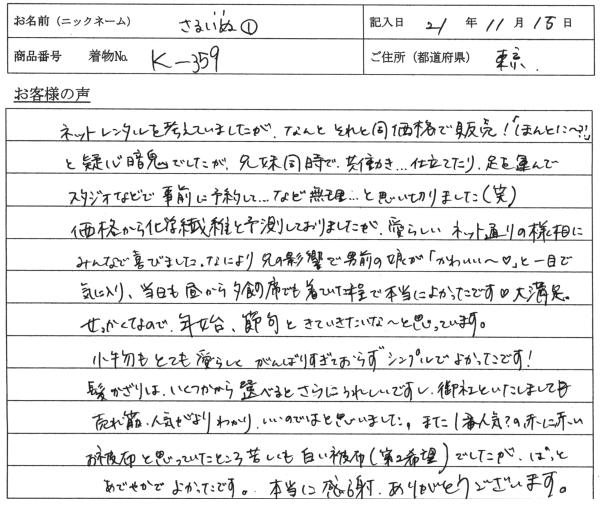 お名前（ニックネーム） さるいぬ① 記入日 21 年 11 月 15 日
商品番号 着物No. K-359 ご住所（都道府県） 東京.
お客様の声
ネットレンタルを考えていましたが、なんと それと同価格で販売！「ほんとに〜？！」
と疑心暗鬼でしたが、兄妹同時で、共働き…仕立てたり、足を運んで
スタジオなどで 事前に予約して…など無理…と思い切りました（笑）
価格から化学繊維と予測しておりましたが、愛らしい ネット通りの様相に
みんなで喜びました。なにより 兄の影響で男前の娘が「かわいい〜♡」と一目で
気に入り、当日も昼から夕食の席でも着ていた程で本当によかったです♡大満足。
せっかくなので、年始、節句ときていきたいな〜と思っています。
小物もとても愛らしく がんばりすぎておらず シンプルでよかったです！
髪かざりは、いくつかから選べるとさらにうれしいですし、御社といたしましても
売れ筋、人気がよりわかり、いいのではと思いました。また 1番人気？の赤に赤い
お被布と思っていたところ 苦しくも 白い被布（第2希望）でしたが、ぱっと
あでやかで よかったです。本当に感謝、ありがとうございます。